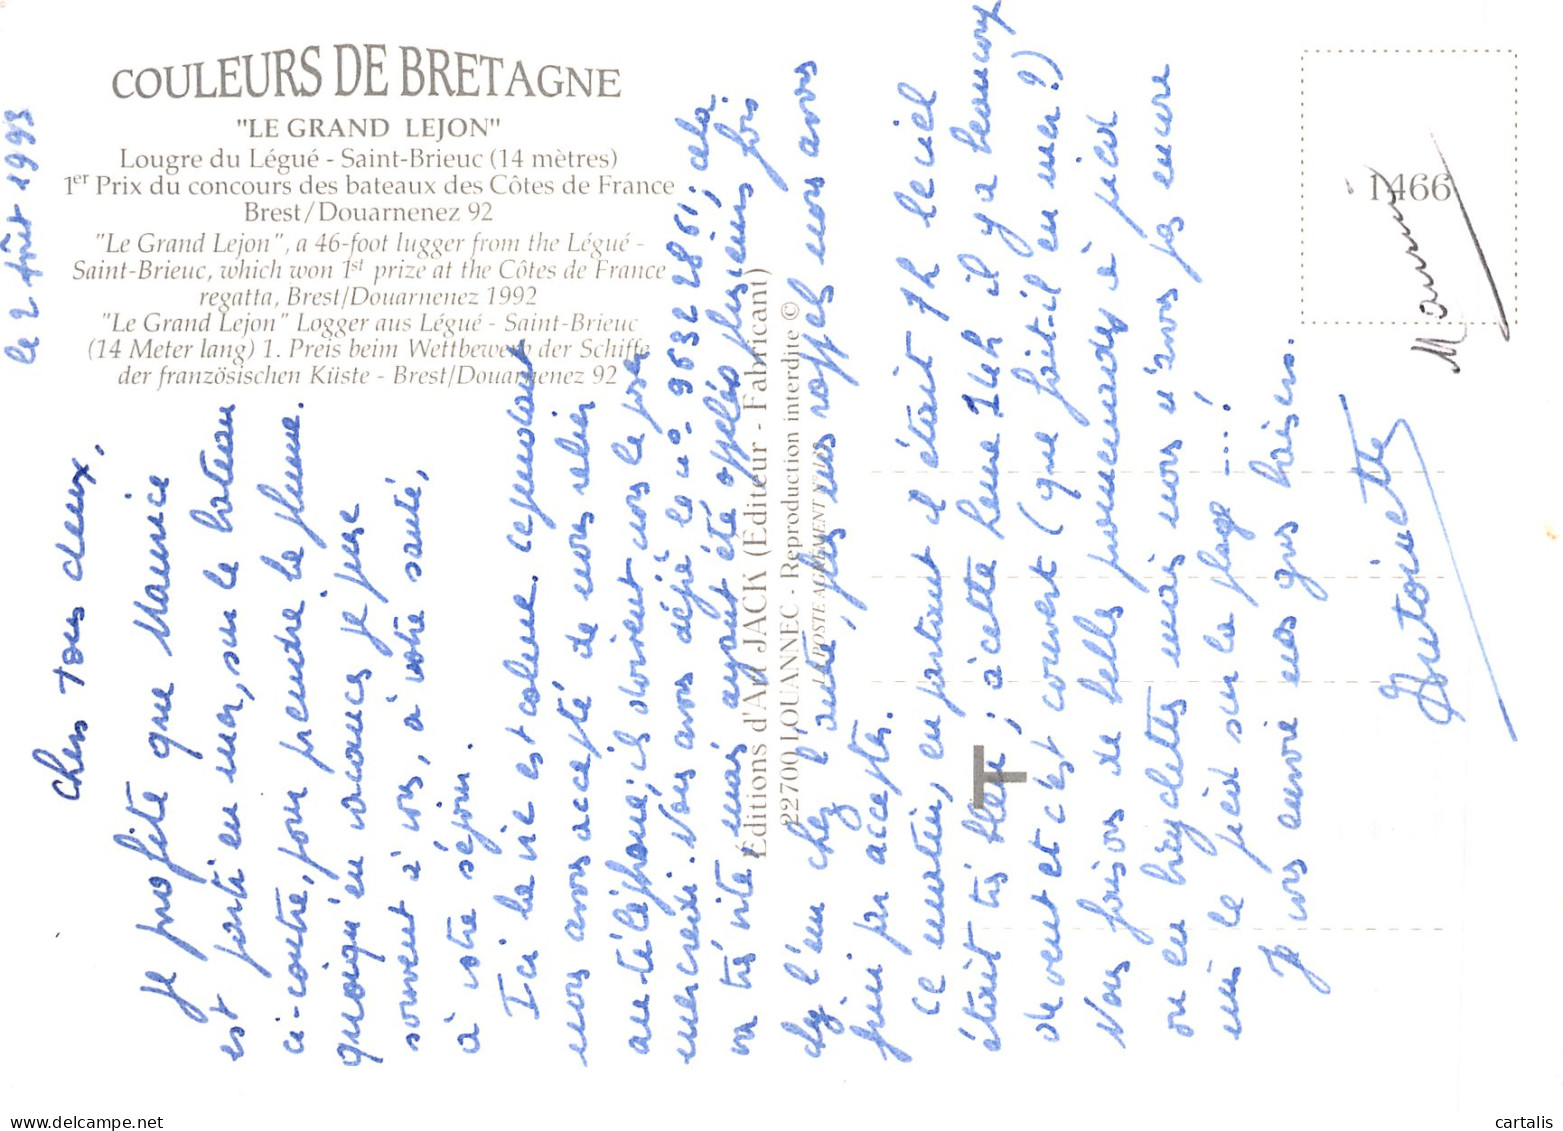 COULEURS DE BRETAGNE
"LE GRAND LEJON"
Lougre du Légué - Saint-Brieuc (14 mètres)
1er Prix du concours des bateaux des Côtes de France
Brest/Douarnenez 92
"Le Grand Lejon", a 46-foot lugger from the Légué -
Saint-Brieuc, which won 1st prize at the Côtes de France
regatta, Brest/Douarnenez 1992
"Le Grand Lejon" Logger aus Légué - Saint-Brieuc
(14 Meter lang) 1. Preis beim Wettbewerb der Schiffe
der französischen Küste - Brest/Douarnenez 92
1466
Éditions d'Art JACK (Éditeur - Fabricant)
22700 LOUANNEC - Reproduction interdite ©
LA POSTE AGRÉMENT N°
T
le 2 Août 1993
Chers tous deux,
Je profite que Maurice
est parti en mer, sur le bateau
ci-contre, pour prendre la plume.
quoiqu'en vacances je pense
souvent à vous, à votre santé,
à votre séjour.
Ici la vie est calme. cependant
nous avons accepté de nous relier
au téléphone; ils doivent nous le poser
mercredi. Nous avons déjà le n° 96322861; cela
va très vite, mais ayant été appelés plusieurs fois
chez l'un chez l'autre, plus nos rappels nous avons
fini par accepter.
Ce matin, en partant il était 7h le ciel
était très bleu; à cette heure 14h il y a beaucoup
de vent et c'est couvert (que fait-il en mer?)
Nous faisons de belles promenades à pied
ou en bicyclettes mais nous n'avons pas encore
mis le pied sur la plage ...!
Je vous envoie mes gros baisers.
Antoinette
Maurice
delcampe.net
cartalis